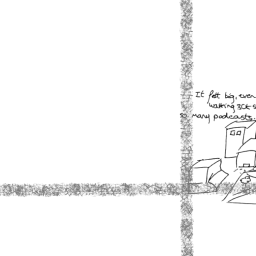 It felt big, even
walking 30k s
so many podcasts.